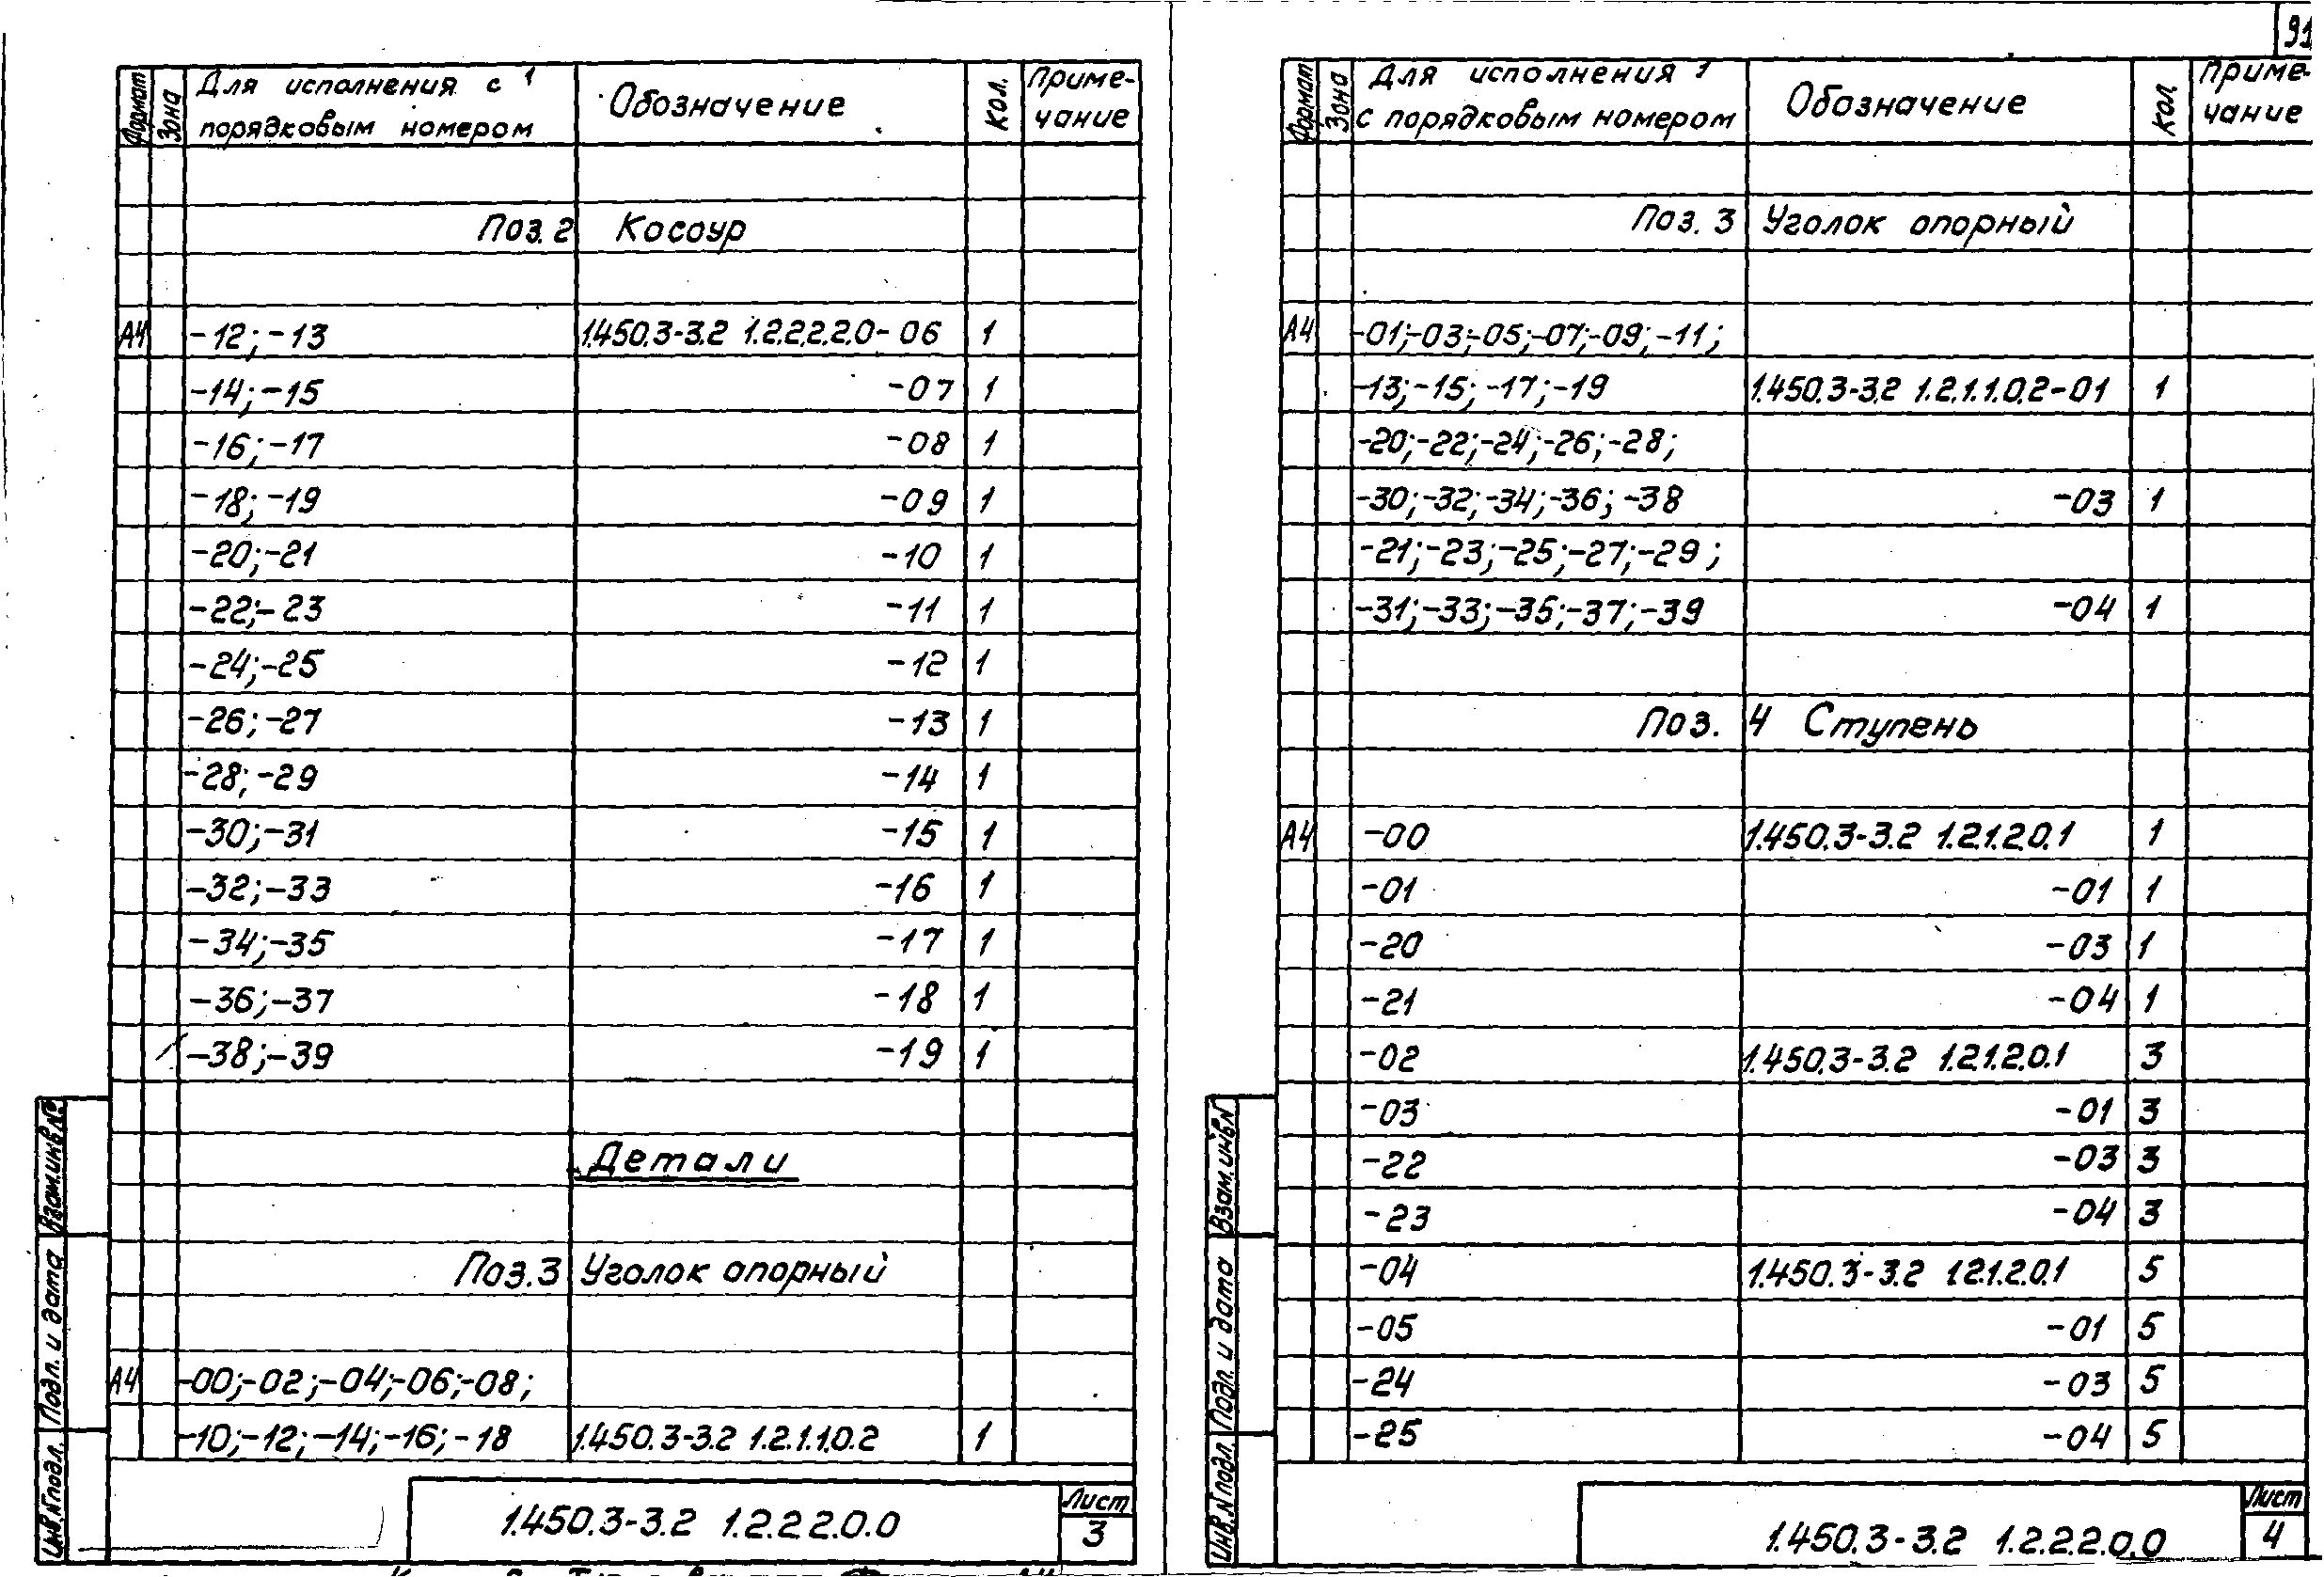 91
Формат Зона Для исполнения с порядковым номером Обозначение кол. Примечание
Поз. 2 Косоур
А4 -12; -13 1.450.3-3.2 1.2.2.2.2.0-06 1
-14; -15 -07 1
-16; -17 -08 1
-18; -19 -09 1
-20; -21 -10 1
-22; -23 -11 1
-24; -25 -12 1
-26; -27 -13 1
-28; -29 -14 1
-30; -31 -15 1
-32; -33 -16 1
-34; -35 -17 1
-36; -37 -18 1
-38; -39 -19 1
Детали
Поз. 3 Уголок опорный
А4 -00; -02; -04; -06; -08;
-10; -12; -14; -16; -18 1.450.3-3.2 1.2.1.1.0.2 1
Инв.№подл. Подп. и дата Взам.инв.№
1.450.3-3.2 1.2.2.2.0.0
Лист
3
Формат Зона Для исполнения с порядковым номером Обозначение кол. Примечание
Поз. 3 Уголок опорный
А4 -01; -03; -05; -07; -09; -11;
-13; -15; -17; -19 1.450.3-3.2 1.2.1.1.0.2-01 1
-20; -22; -24; -26; -28;
-30; -32; -34; -36; -38 -03 1
-21; -23; -25; -27; -29;
-31; -33; -35; -37; -39 -04 1
Поз. 4 Ступень
А4 -00 1.450.3-3.2 1.2.1.2.0.1 1
-01 -01 1
-20 -03 1
-21 -04 1
-02 1.450.3-3.2 1.2.1.2.0.1 3
-03 -01 3
-22 -03 3
-23 -04 3
-04 1.450.3-3.2 1.2.1.2.0.1 5
-05 -01 5
-24 -03 5
-25 -04 5
Инв.№подл. Подп. и дата Взам.инв№
1.450.3-3.2 1.2.2.2.0.0
Лист
4